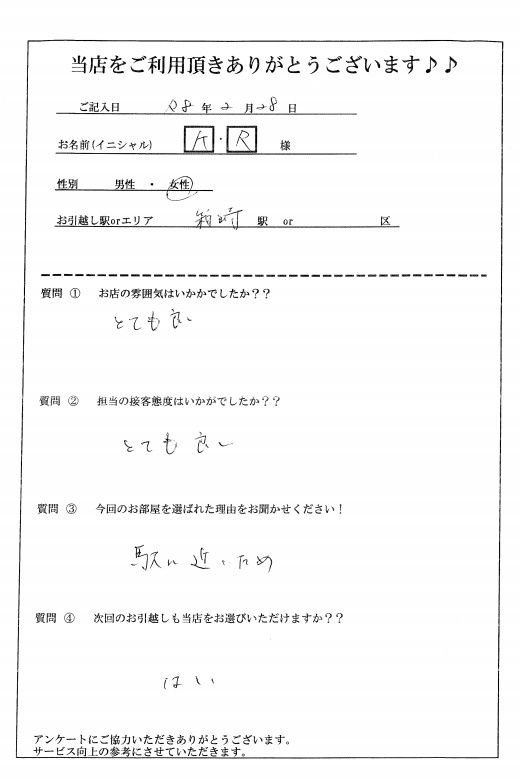 当店をご利用頂きありがとうございます♪♪
ご記入日 R8年2月28日
お名前(イニシャル) K・R 様
性別 男性・女性
お引越し駅orエリア 箱崎 駅 or 区
質問 ① お店の雰囲気はいかかでしたか？？
とても良い
質問 ② 担当の接客態度はいかがでしたか？？
とても良い
質問 ③ 今回のお部屋を選ばれた理由をお聞かせください！
駅に近いため
質問 ④ 次回のお引越しも当店をお選びいただけますか？？
はい
アンケートにご協力いただきありがとうございます。
サービス向上の参考にさせていただきます。